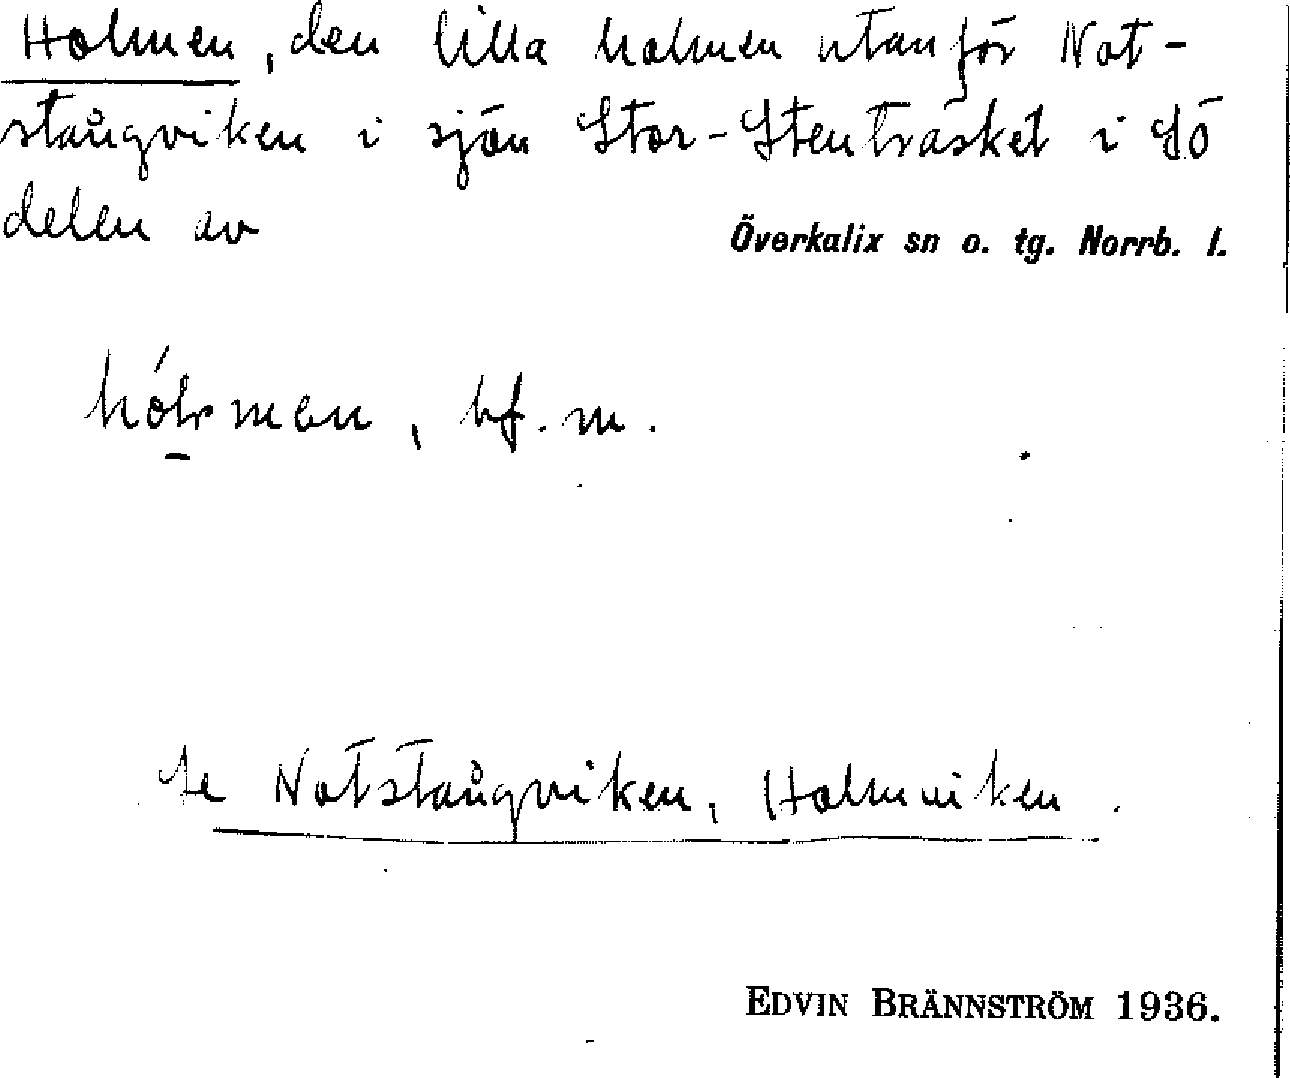 Holmen, den lilla holmen utanför Not-
stångviken i sjön Stor-Stenträsket i SÖ
delen av
Överkalix sn o. tg. Norrb. l.
bf. m.
Se Notstångviken, Holmviken.
EDVIN BRÄNNSTRÖM 1936.